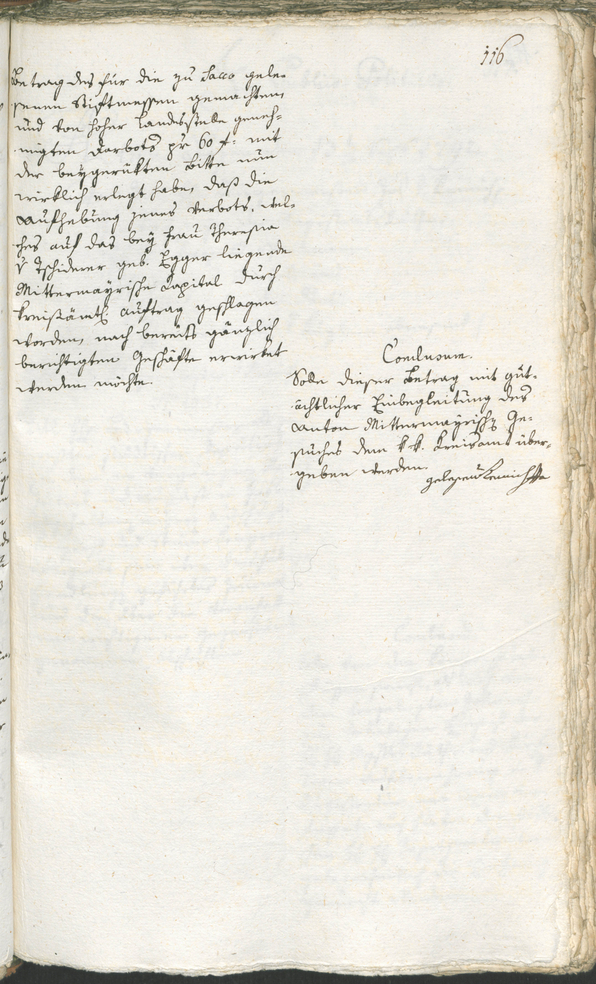 116
Betrag des für die zu Sacco gele-
senen Stiftmessen gemachten,
und von hoher Landesstelle geneh-
migten Darbots pr 60 f: mit
der beygerükten Bitte nun
wirklich erlegt habe, daß die
Aufhebung jenes Verbots, wel-
ches auf das bey Frau Theresia
v Tschiderer geb. Egger liegende
Mittermayrische Capital durch
kreisämtl: Auftrag geschlagen
worden, nach bereits gänzlich
berichtigten Geschäfte erwirket
werden möchte.
Conclusum.
Solle dieser Betrag mit gut-
ächtlicher Einbegleitung des
Anton Mittermayrischen Ge-
suches dem k. k. Kreisamt über-
geben werden.